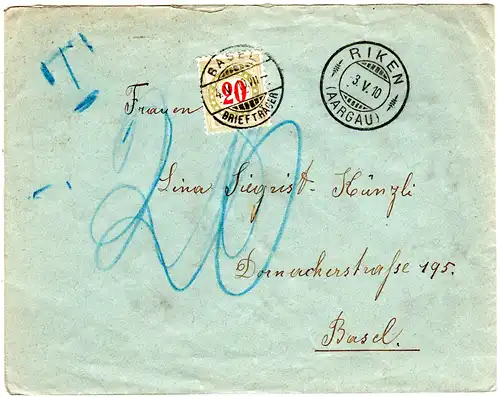 T
BASEL 1
4.V.10 VII-
BRIEFTRÄGER
20
RIKEN
3.V.10
(AARGAU)
Frauen
Lina Siegrist-Künzli
20
Dornacherstraße 195.
Basel.